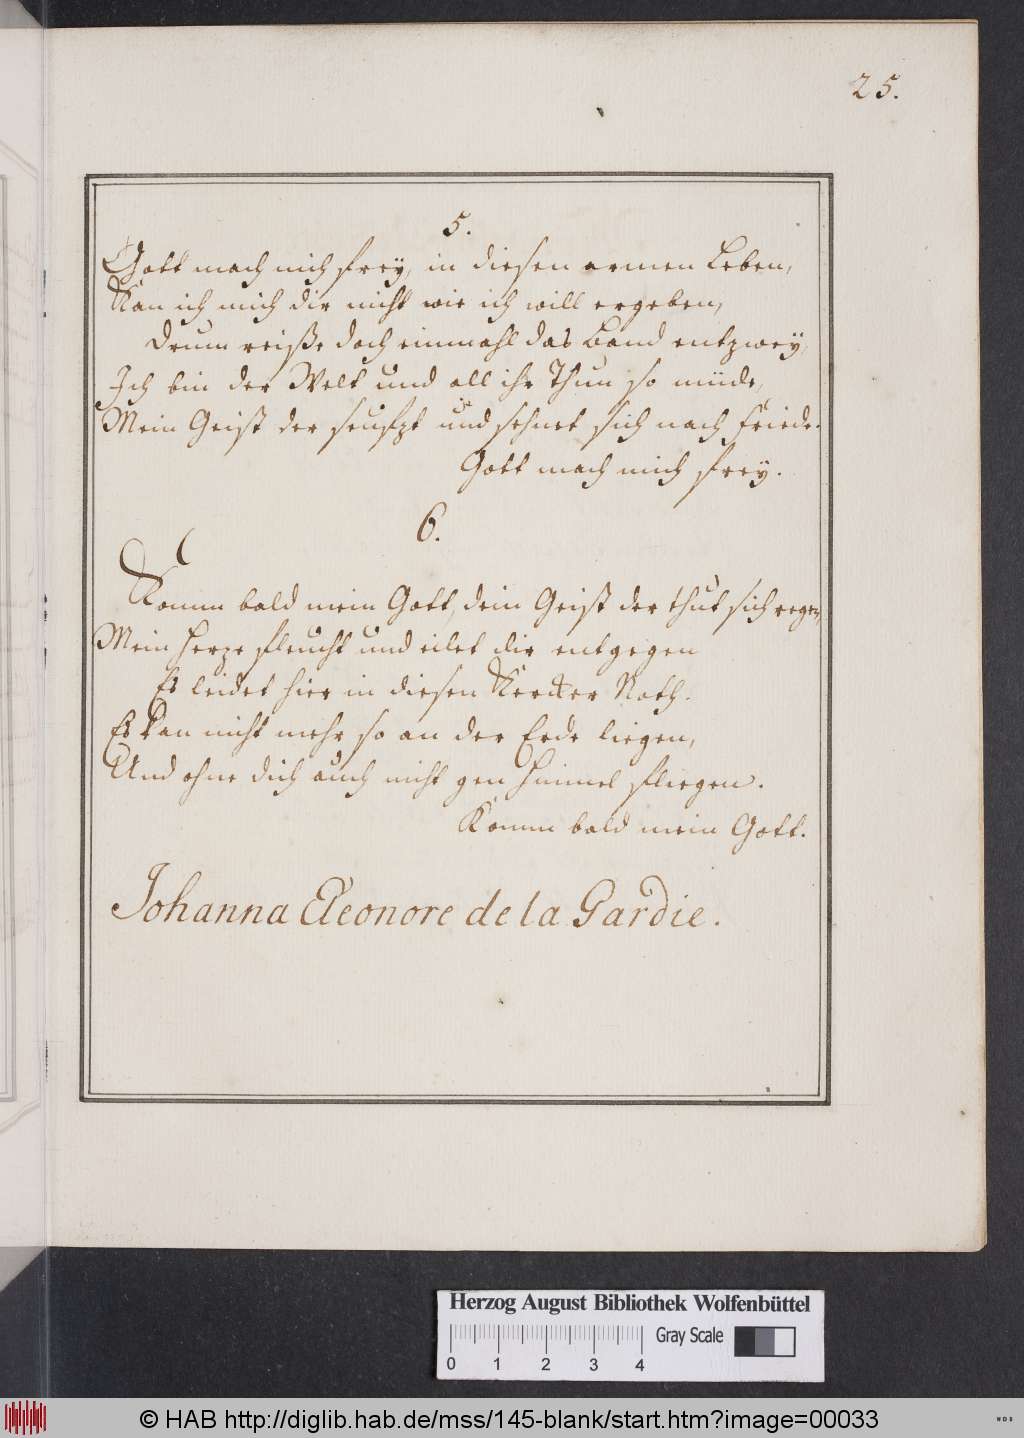 25.
5.
Gott mach mich frey, in diesen armen Leben,
Kan ich mich dir nicht wie ich will ergeben,
Drum reiße doch einmahl das Band entzwey,
Ich bin der Welt und all ihr Thun so müde,
Mein Geist der seufzt und sehnet sich nach Friede.
Gott mach mich frey.
6.
Komm bald mein Gott, dein Geist der thut sich regen,
Mein Herze fleucht und eilet dir entgegen
Es leidet hier in diesen Kercker Noth.
Es kan nicht mehr so an der Erde liegen,
Und ohne dich auch nicht gen Himmel fliegen.
Komm bald mein Gott.
Johanna Eleonore de la Gardie.
Herzog August Bibliothek Wolfenbüttel
Gray Scale
0 1 2 3 4
© HAB http://diglib.hab.de/mss/145-blank/start.htm?image=00033